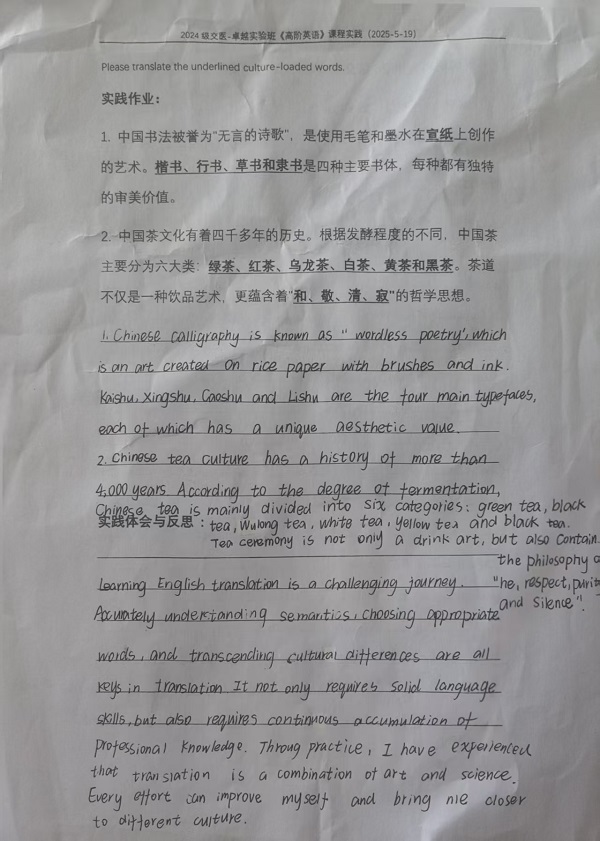 2024 级交医-卓越实验班《高阶英语》课程实践（2025-5-19）
Please translate the underlined culture-loaded words.
实践作业：
1. 中国书法被誉为“无言的诗歌”，是使用毛笔和墨水在宣纸上创作
的艺术。楷书、行书、草书和隶书是四种主要书体，每种都有独特
的审美价值。
2. 中国茶文化有着四千多年的历史。根据发酵程度的不同，中国茶
主要分为六大类：绿茶、红茶、乌龙茶、白茶、黄茶和黑茶。茶道
不仅是一种饮品艺术，更蕴含着“和、敬、清、寂”的哲学思想。
1. Chinese calligraphy is known as "wordless poetry", which
is an art created on rice paper with brushes and ink.
Kaishu, Xingshu, Caoshu and Lishu are the four main typefaces,
each of which has a unique aesthetic value.
2. Chinese tea culture has a history of more than
4,000 years. According to the degree of fermentation,
Chinese tea is mainly divided into six categories: green tea, black
实践体会与反思：
tea, Wulong tea, white tea, yellow tea and black tea.
Tea ceremony is not only a drink art, but also contain
the philosophy o
"he, respect, purit
and silence".
Learning English translation is a challenging journey.
Accurately understanding semantics, choosing appropriate
words, and transcending cultural differences are all
keys in translation. It not only requires solid language
skills, but also requires continuous accumulation of
professional knowledge. Throug practice, I have experienced
that translation is a combination of art and science.
Every effort can improve myself and bring me closer
to different culture.